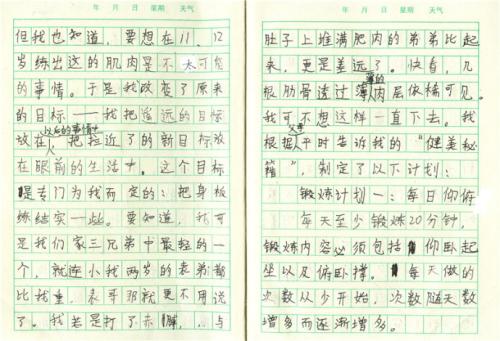 年 月 日 星期 天气
但我也知道，要想在11、12
岁练出这的肌肉是不太可能
的事情。于是我改变了原来
的目标——我把遥远的目标
放在以后的事情中，把拉近了的新目标放
在眼前的生活中。这个目标
是专门为我而定的：把身板
练结实一些。要知道，我可
是我们家三兄弟中最轻的一
个，就连小我两岁的表弟都
比我重，表哥那就更不用说
了。我若是打了赤膊，与
年 月 日 星期 天气
肚子上堆满肥肉的弟弟比起
来，更是差远了。快看，几
根肋骨透过薄薄的肉层依稀可见。
我可不想这样一直下去。我
根据父亲平时告诉我的“健美秘
籍”，制定了以下计划：
锻炼计划一：每日仰俯
每天至少锻炼20分钟，
锻炼内容必须包括仰卧起
坐以及俯卧撑。每天做的
次数从少开始，次数随天数
增多而逐渐增多。